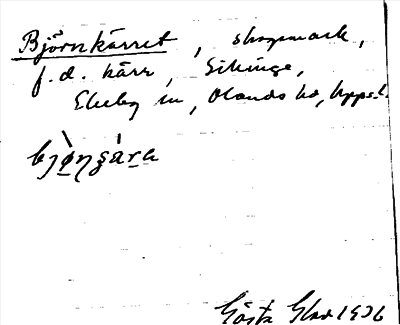 Björnkärret, skogsmark,
f.d. kärr, Gihinge,
Ekeby sn, Olands hd, Uppsl.
bjø̀ṇṣára
Gösta Glas 1936